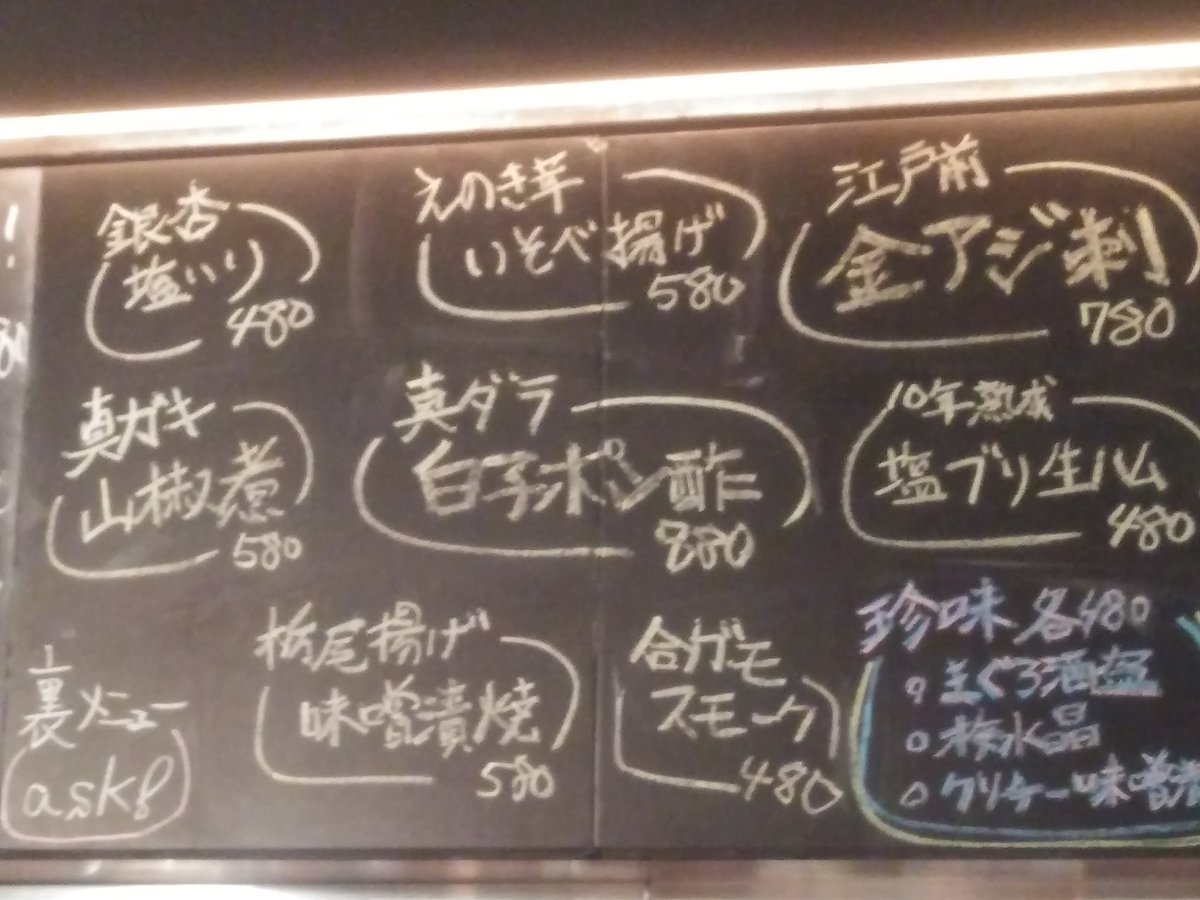 銀杏
塩いり
480
えのき茸
いそべ揚げ
580
江戸前
金アジ刺
780
真ガキ
山椒煮
580
真ダラ
白子ポン酢
880
10年熟成
塩ブリ生ハム
480
裏メニュー
ask!
栃尾揚げ
味噌漬焼
580
合ガモ
スモーク
480
珍味 各480
まぐろ酒盗
梅水晶
クリチー味噌漬